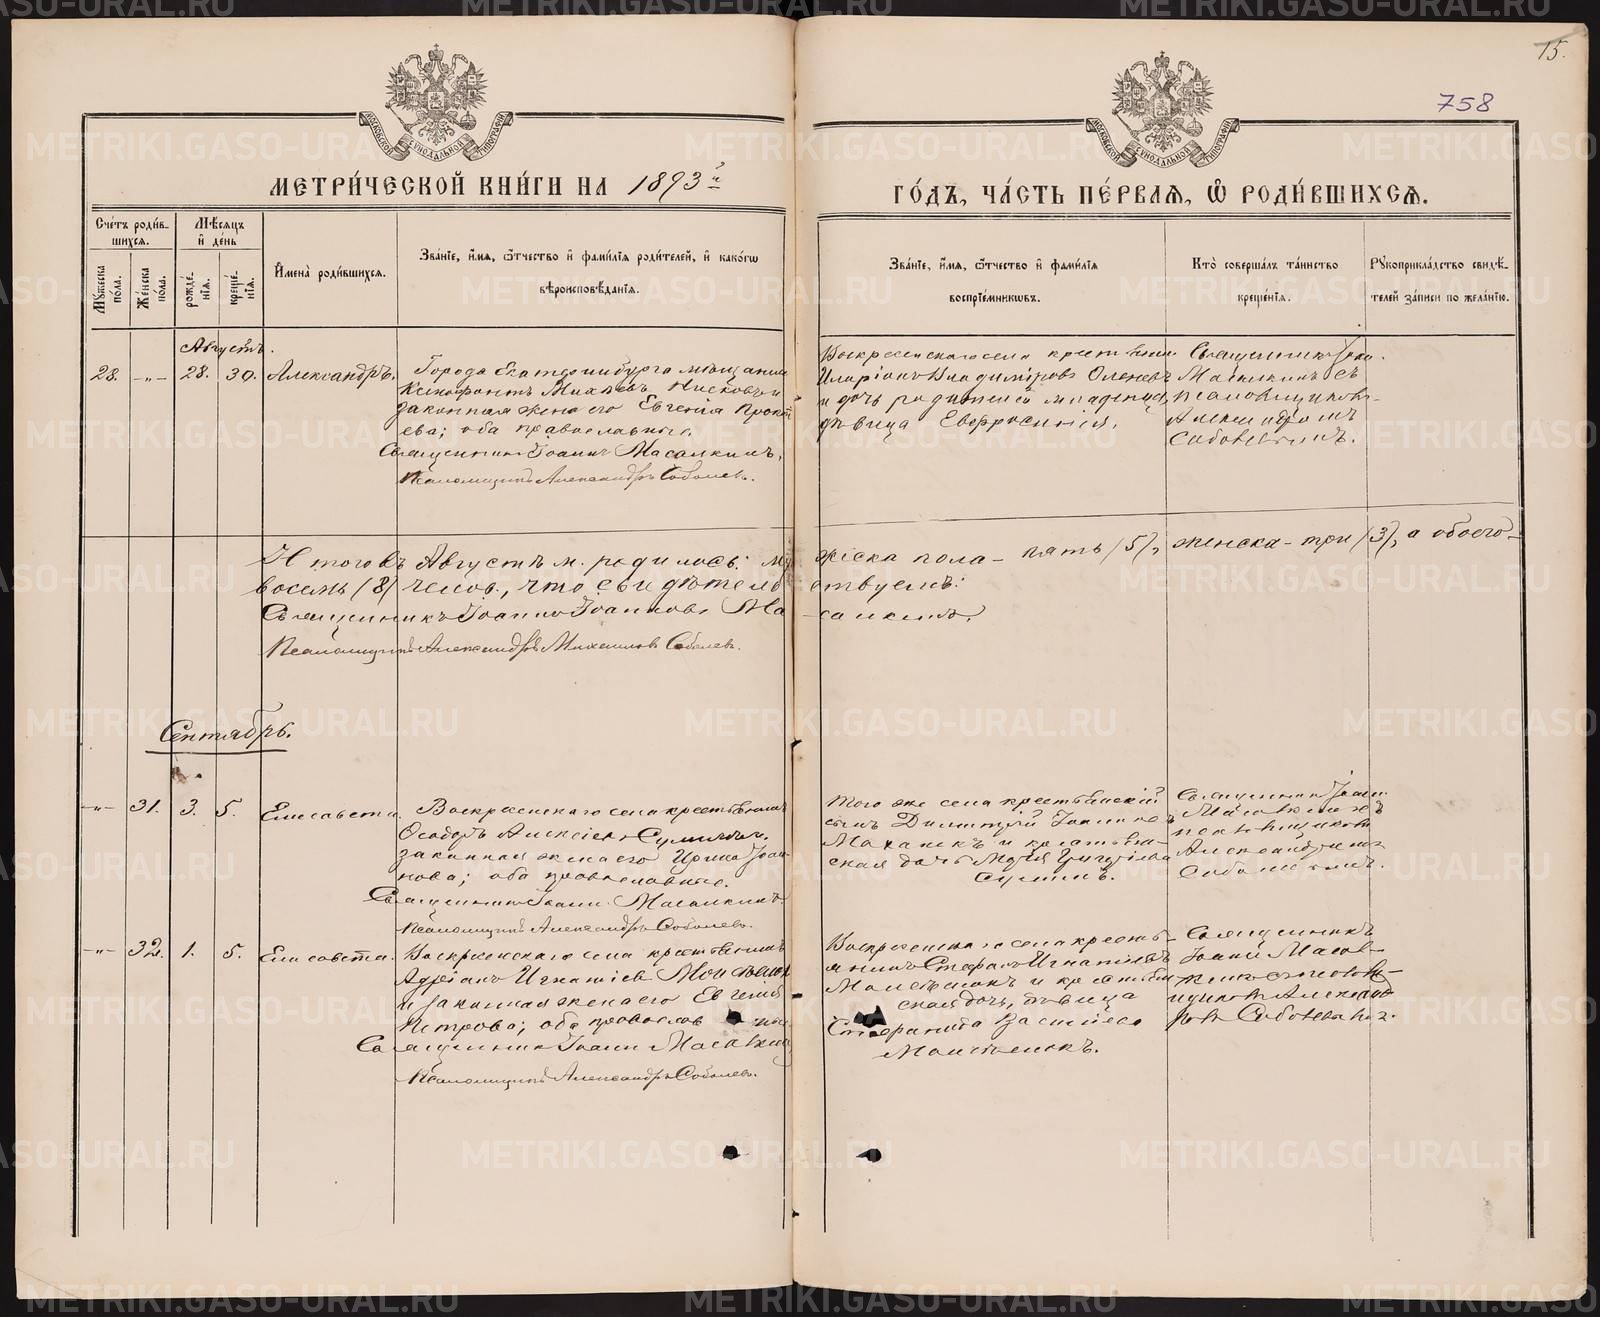 15.
758
МОСКОВСКОЙ СѴНОДАЛЬНОЙ ТИПОГРАФІИ
МОСКОВСКОЙ СѴНОДАЛЬНОЙ ТИПОГРАФІИ
МЕТРИ́ЧЕСКОЙ КНИ́ГИ НА 1893й
ГО́ДЪ, ЧА́СТЬ ПЕ́РВАѦ, Ѡ РОДИ́ВШИХСѦ.
Сче́тъ роди́в-
шихся.
Мѣ́сяцъ
и҆ де́нь
Му́жеска по́ла.
Же́нска по́ла.
рожде́-
нія.
креще́-
нія.
И҆мена̀ роди́вшихся.
Зва́ніе, и҆́мя, ѻ҆́тчество и҆ фами́лія роди́телей, и҆ како́гѡ
вѣроисповѣ́данія.
Зва́ніе, и҆́мя, ѻ҆́тчество и҆ фами́лія
воспріе́мникѡвъ.
Кто̀ соверша́лъ та́инство
креще́нія.
Рꙋкоприкла́дство свидѣ́-
телей за́писи по жела́нію.
Августъ.
28. -„- 28. 30. Александръ.
Города Екатеринбурга мѣщанинъ
Ксенофонтъ
законная жена его Евгенія Прокопі
ева; оба православные.
Священникъ Іоаннъ Масалкинъ.
Псаломщикъ Александръ Соболевъ.
Воскресенскаго села крестьянинъ
Иларіонъ Владиміровъ
и дочь родителей младенца,
дѣвица Евфросинія.
Священникъ Іоан.
Масалкинъ съ
псаломщикомъ
Александромъ
Соболевымъ.
Итого въ Августѣ м. родилось: му жеска пола - пять (5), женска - три (3), а обоего -
восемь (8) челов., что свидѣтель ствуемъ:
Священникъ Іоаннъ Іоанновъ Ма салкинъ.
Псаломщикъ Александръ Михаиловъ Соболевъ.
Сентябрь.
-„- 31. 3. 5. Елисавета.
Воскресенскаго села крестьянинъ
Ѳеодоръ Алексіевъ
законная жена его Ирина Іоан-
нова; оба православные.
Священникъ Іоаннъ Масалкинъ.
Псаломщикъ Александръ Соболевъ.
Того же села крестьянскій
сынъ Димитрій Іоанновъ
и крестьян-
ская дочь Марія Григоріева
Священникъ Іоаннъ
Масалкинъ съ
псаломщикомъ
Александромъ
Соболевымъ.
-„- 32. 1. 5. Елисавета.
Воскресенскаго села крестьянинъ
Адріанъ Игнатіевъ
и законная жена его Евгенія
Петрова; оба православные
Священникъ Іоаннъ Масалкинъ
Псаломщикъ Александръ Соболевъ.
Воскресенскаго села кресть-
янинъ Стефанъ Игнатіевъ
и крестьян
ская дочь, дѣвица
Священникъ
Іоаннъ Масал-
кинъ съ псаломщ-
щикомъ Александ-
ромъ Соболевымъ.
METRIKI.GASO-URAL.RU